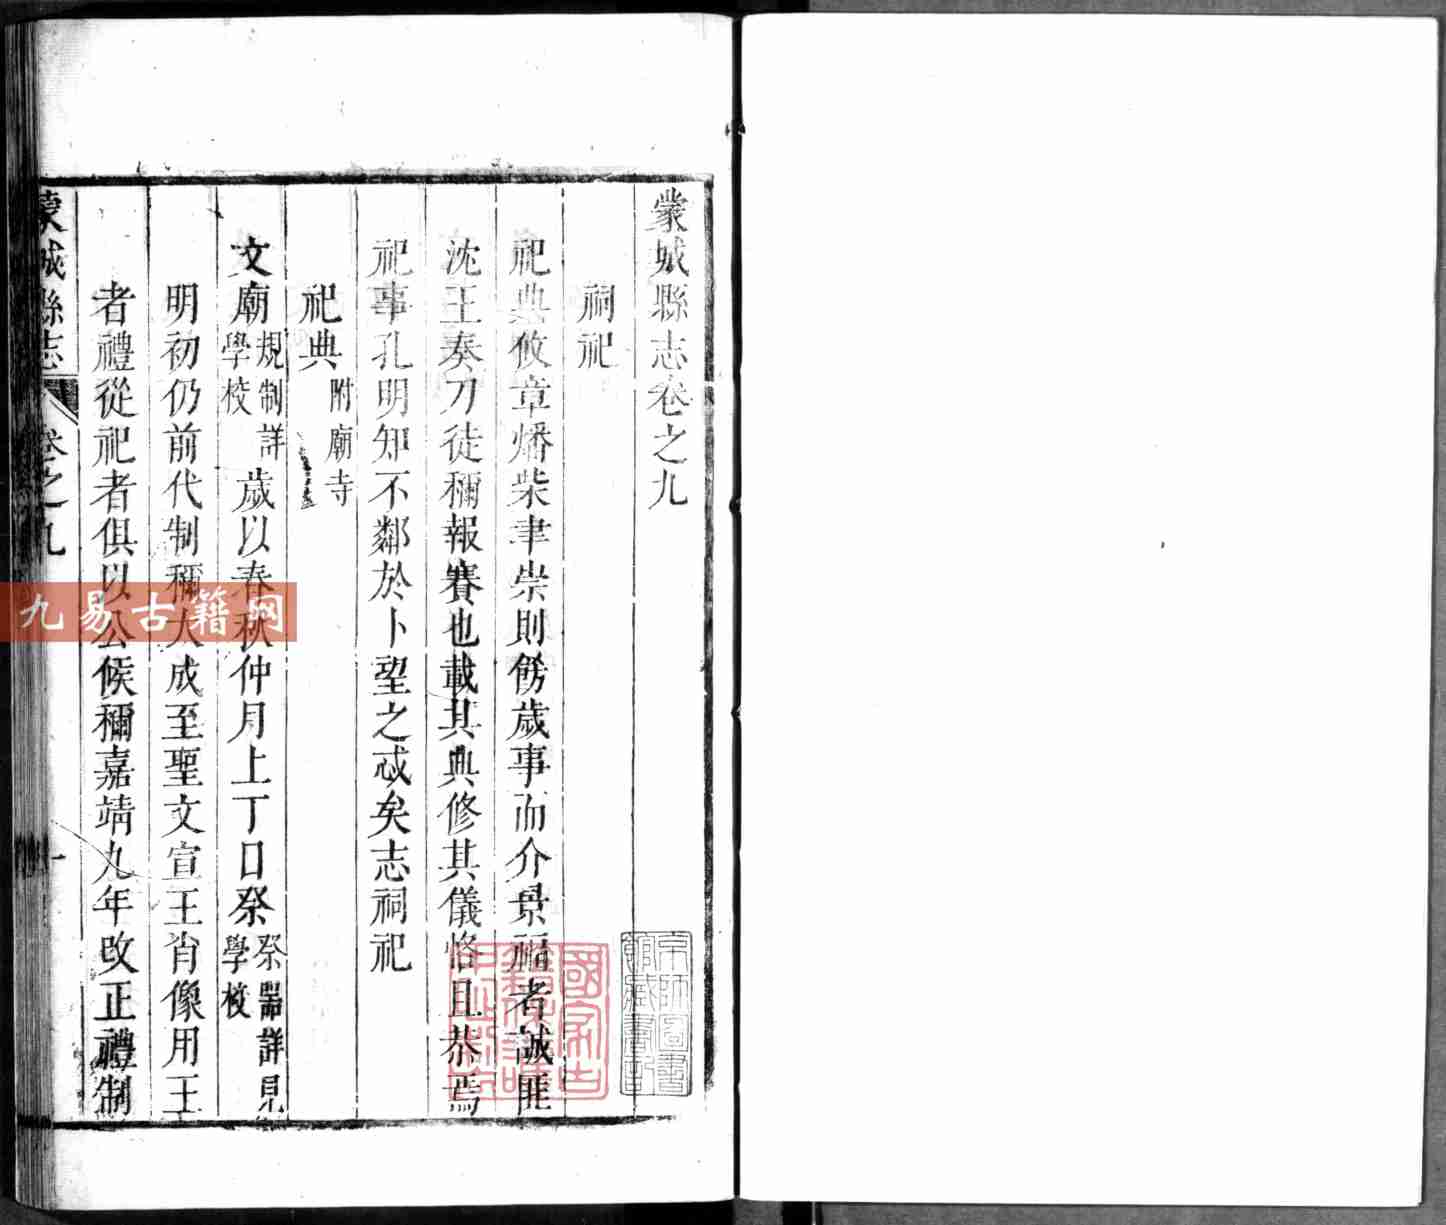 蒙城縣志卷之九
祠祀
祀典攸章燔柴聿崇則偹歲事而介景福者誠匪
沈玉奏刀徒稱報賽也載其典修其儀恪且恭焉
祀事孔明知不鄰於卜望之忒矣志祠祀
祀典附廟寺
文廟規制詳學校歲以春秋仲月上丁日祭祭器詳見學校
明初仍前代制稱大成至聖文宣王肖像用王
者禮從祀者俱以公侯稱嘉靖九年改正禮制
蒙城縣志 卷之九 一
京師圖書館藏書記
九易古籍网